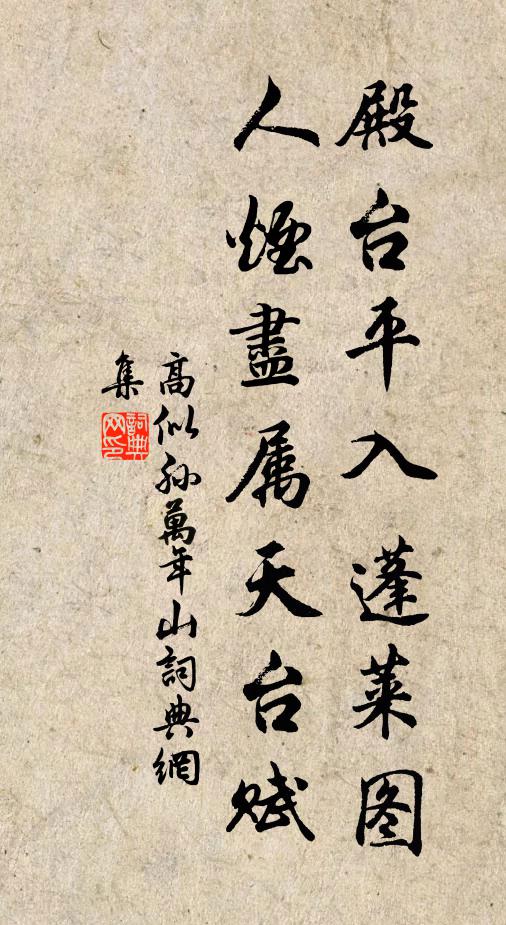 殿台平入蓬莱图
人煙盡属天台赋
高似孙萬年山詞典網
集
詞典网印